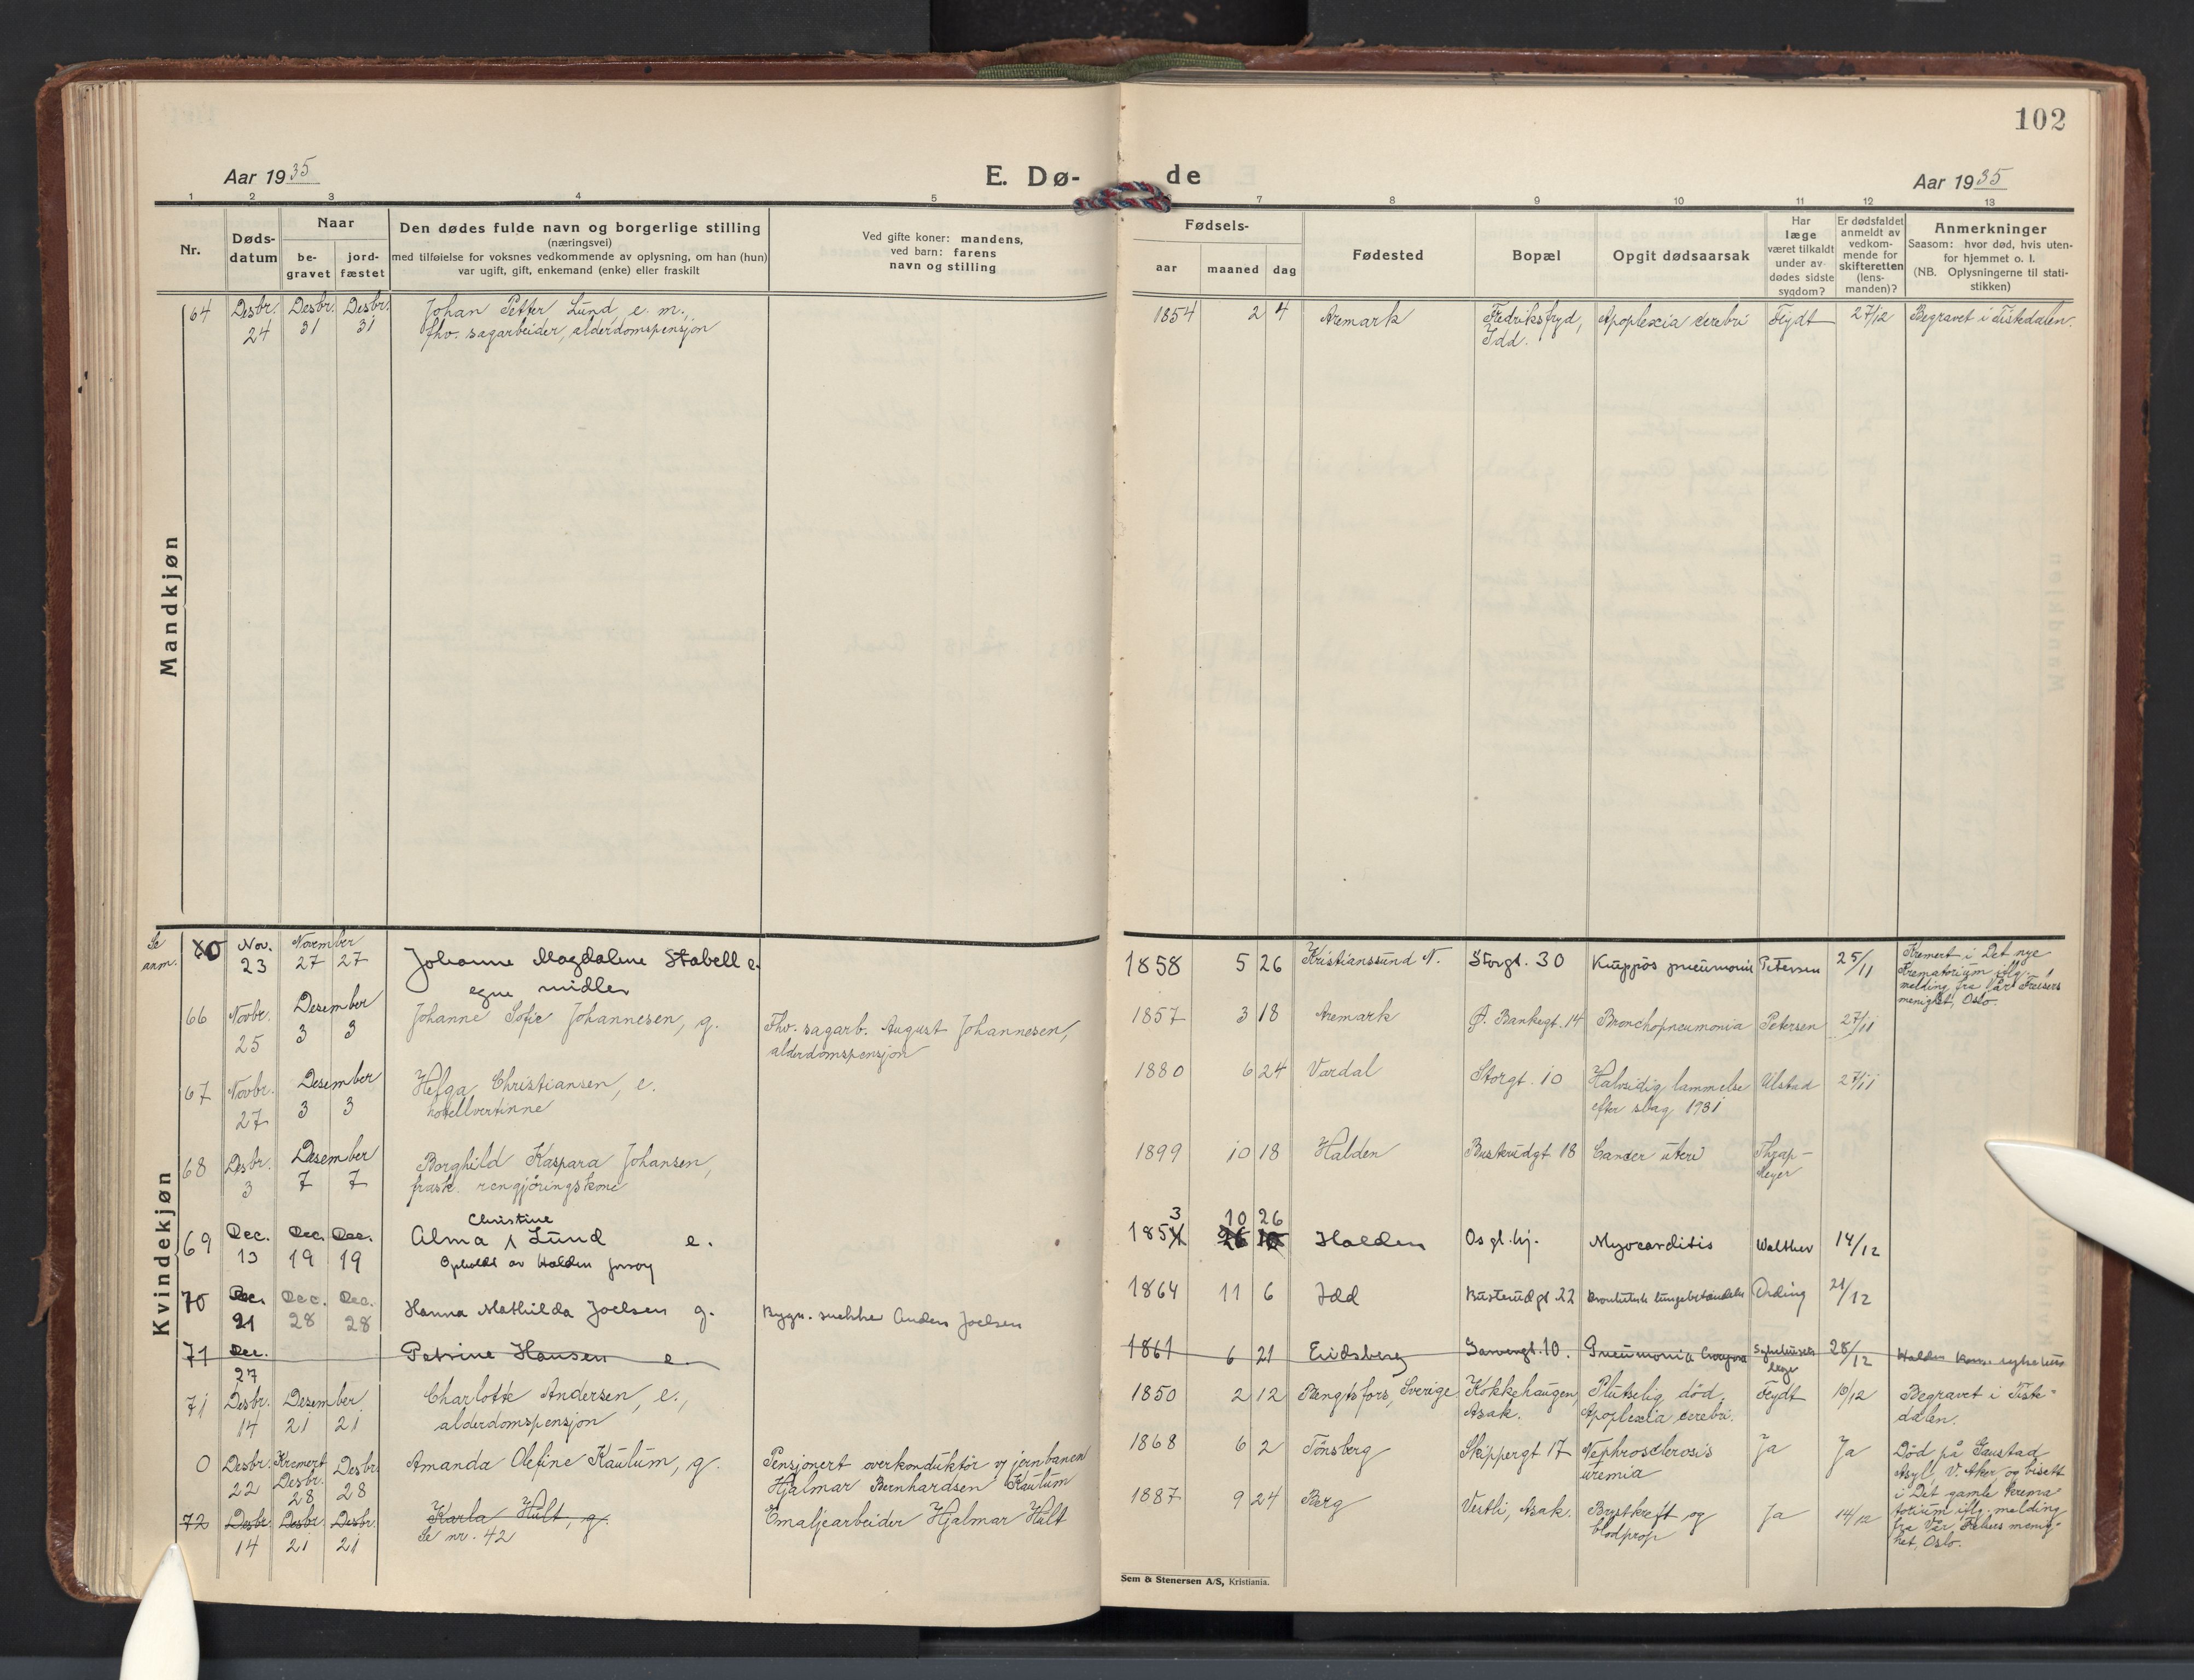 102
Aar 1935
E. Dø-
de
Aar 1935
1 2 3 4 5 7 8 9 10 11 12 13
Nr.
Døds-
datum
Naar
be-
gravet
jord-
fæstet
Den dødes fulde navn og borgerlige stilling
(næringsvei)
med tilføielse for voksnes vedkommende av oplysning, om han (hun)
var ugift, gift, enkemand (enke) eller fraskilt
Ved gifte koner: mandens,
ved barn: farens
navn og stilling
Fødsels-
aar maaned dag
Fødested
Bopæl
Opgit dødsaarsak
Har
læge
været tilkaldt
under av-
dødes sidste
sygdom?
Er dødsfaldet
anmeldt av
vedkom-
mende for
skifteretten
(lens-
manden)?
Anmerkninger
Saasom: hvor død, hvis uten-
for hjemmet o. l.
(NB. Oplysningerne til stati-
stikken)
Mandkjøn
64 Desbr. 24 Desbr. 31 Desbr. 31 Johan Petter Lund, e. m.,
fhv. sagarbeider, alderdomspensjon
1854 2 4 Aremark Fredriksfryd,
Idd.
Apoplexia cerebri Feydt 27/12 Begravet i Tistedalen.
Kvindekjøn
Se
anm.
0 Nov. 23 November 27 27 Johanne Magdalene Stabell e.
egne midler
1858 5 26 Kristianssund N. Storgt. 30 Kruppøs pneumoni Petersen 25/11 Kremert i Det nye
Krematorium iflg.
melding fra Vår Frelsers
menighet, Oslo.
66 Novbr. 25 Desember 3 3 Johanne Sofie Johannesen, g. Fhv. sagarb. August Johannesen,
alderdomspensjon
1857 3 18 Aremark Ø. Bankegt. 14 Bronchopneumonia Petersen 27/11
67 Novbr. 27 Desember 3 3 Helga Christiansen, e.
hotellvertinne
1880 6 24 Vardal Storgt. 10 Halvsidig lammelse
efter slag 1931
Ulstad 27/11
68 Desbr. 3 Desember 7 7 Borghild Kaspara Johansen,
frask. rengjøringskone
1899 10 18 Halden Busterudgt 18 Cancer uteri Thrap-
Meyer
69 Dec. 13 Dec. 19 Dec. 19 Alma Christine Lund e.
Opholdt av Halden forsorg
1853 10 26 Halden Os gl. hj. Myocarditis Walther 14/12
70 Dec. 21 Dec. 28 Dec. 28 Hanna Mathilda Joelsen g. Bygn. snekker Anders Joelsen
1864 11 6 Idd Busterudgt 22 Bronkitisk lungebetændelse Ording 21/12
71 Dec. 27 Petrine Hansen e.
1861 6 21 Eidsberg 10. Pneumonia Sykehusets
lege
28/12 Halden komm. sykehus
71 Desbr. 14 Desember 21 21 Charlotte Andersen, e.,
alderdomspensjon
1850 2 12 Bengtsfors, Sverige Kokkehaugen,
Asak.
Plutselig død.
Apoplexia cerebri.
Feydt 16/12 Begravet i Tiste-
dalen.
0 Desbr. 22 Kremert Desbr. 28 Desbr. 28 Amanda Olefine Kaulum, g. Pensjonert overkonduktør v/ jernbanen
Hjalmar Bernhardsen Kaulum
1868 6 2 Tønsberg Skippergt 17 Nephrosclerosis
uremia
Ja Ja Død på Gaustad
Asyl, V. Aker, og bisatt
i Det gamle krema-
torium iflg. melding
fra Vår Frelsers menig-
het, Oslo.
72 Desbr. 14 Desbr. 21 Desbr. 21 Karla Hult, g.
Se nr. 42
Emaljearbeider Hjalmar Hult
1887 9 24 Berg Vestli, Asak. Brystkreft og
blodprop
Ja 14/12
Sem & Stenersen A/S, Kristiania.